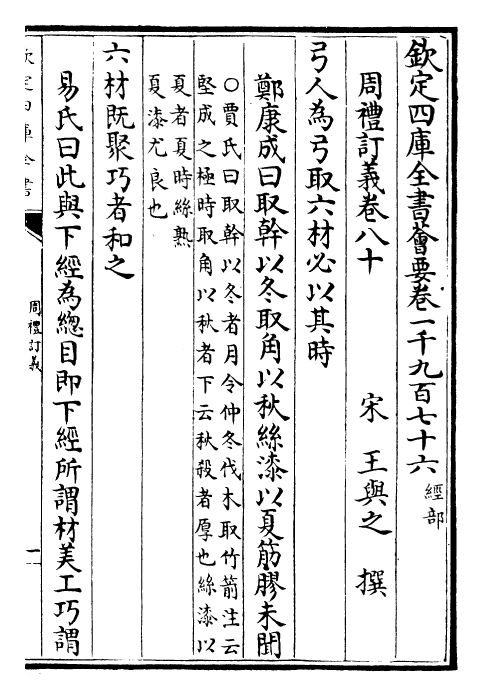 欽定四庫全書薈要卷一千九百七十六經部
周禮訂義卷八十
宋王與之撰
弓人為弓取六材必以其時
鄭康成曰取幹以冬取角以秋絲漆以夏筋膠未聞
○賈氏曰取幹以冬者月令仲冬伐木取竹箭注云
堅成之極時取角以秋者下云秋殺者厚也絲漆以
夏者夏時絲熟
夏漆尤良也
六材既聚巧者和之
易氏曰此與下經為總目即下經所謂材美工巧謂
欽定四庫全書
周禮訂義
一